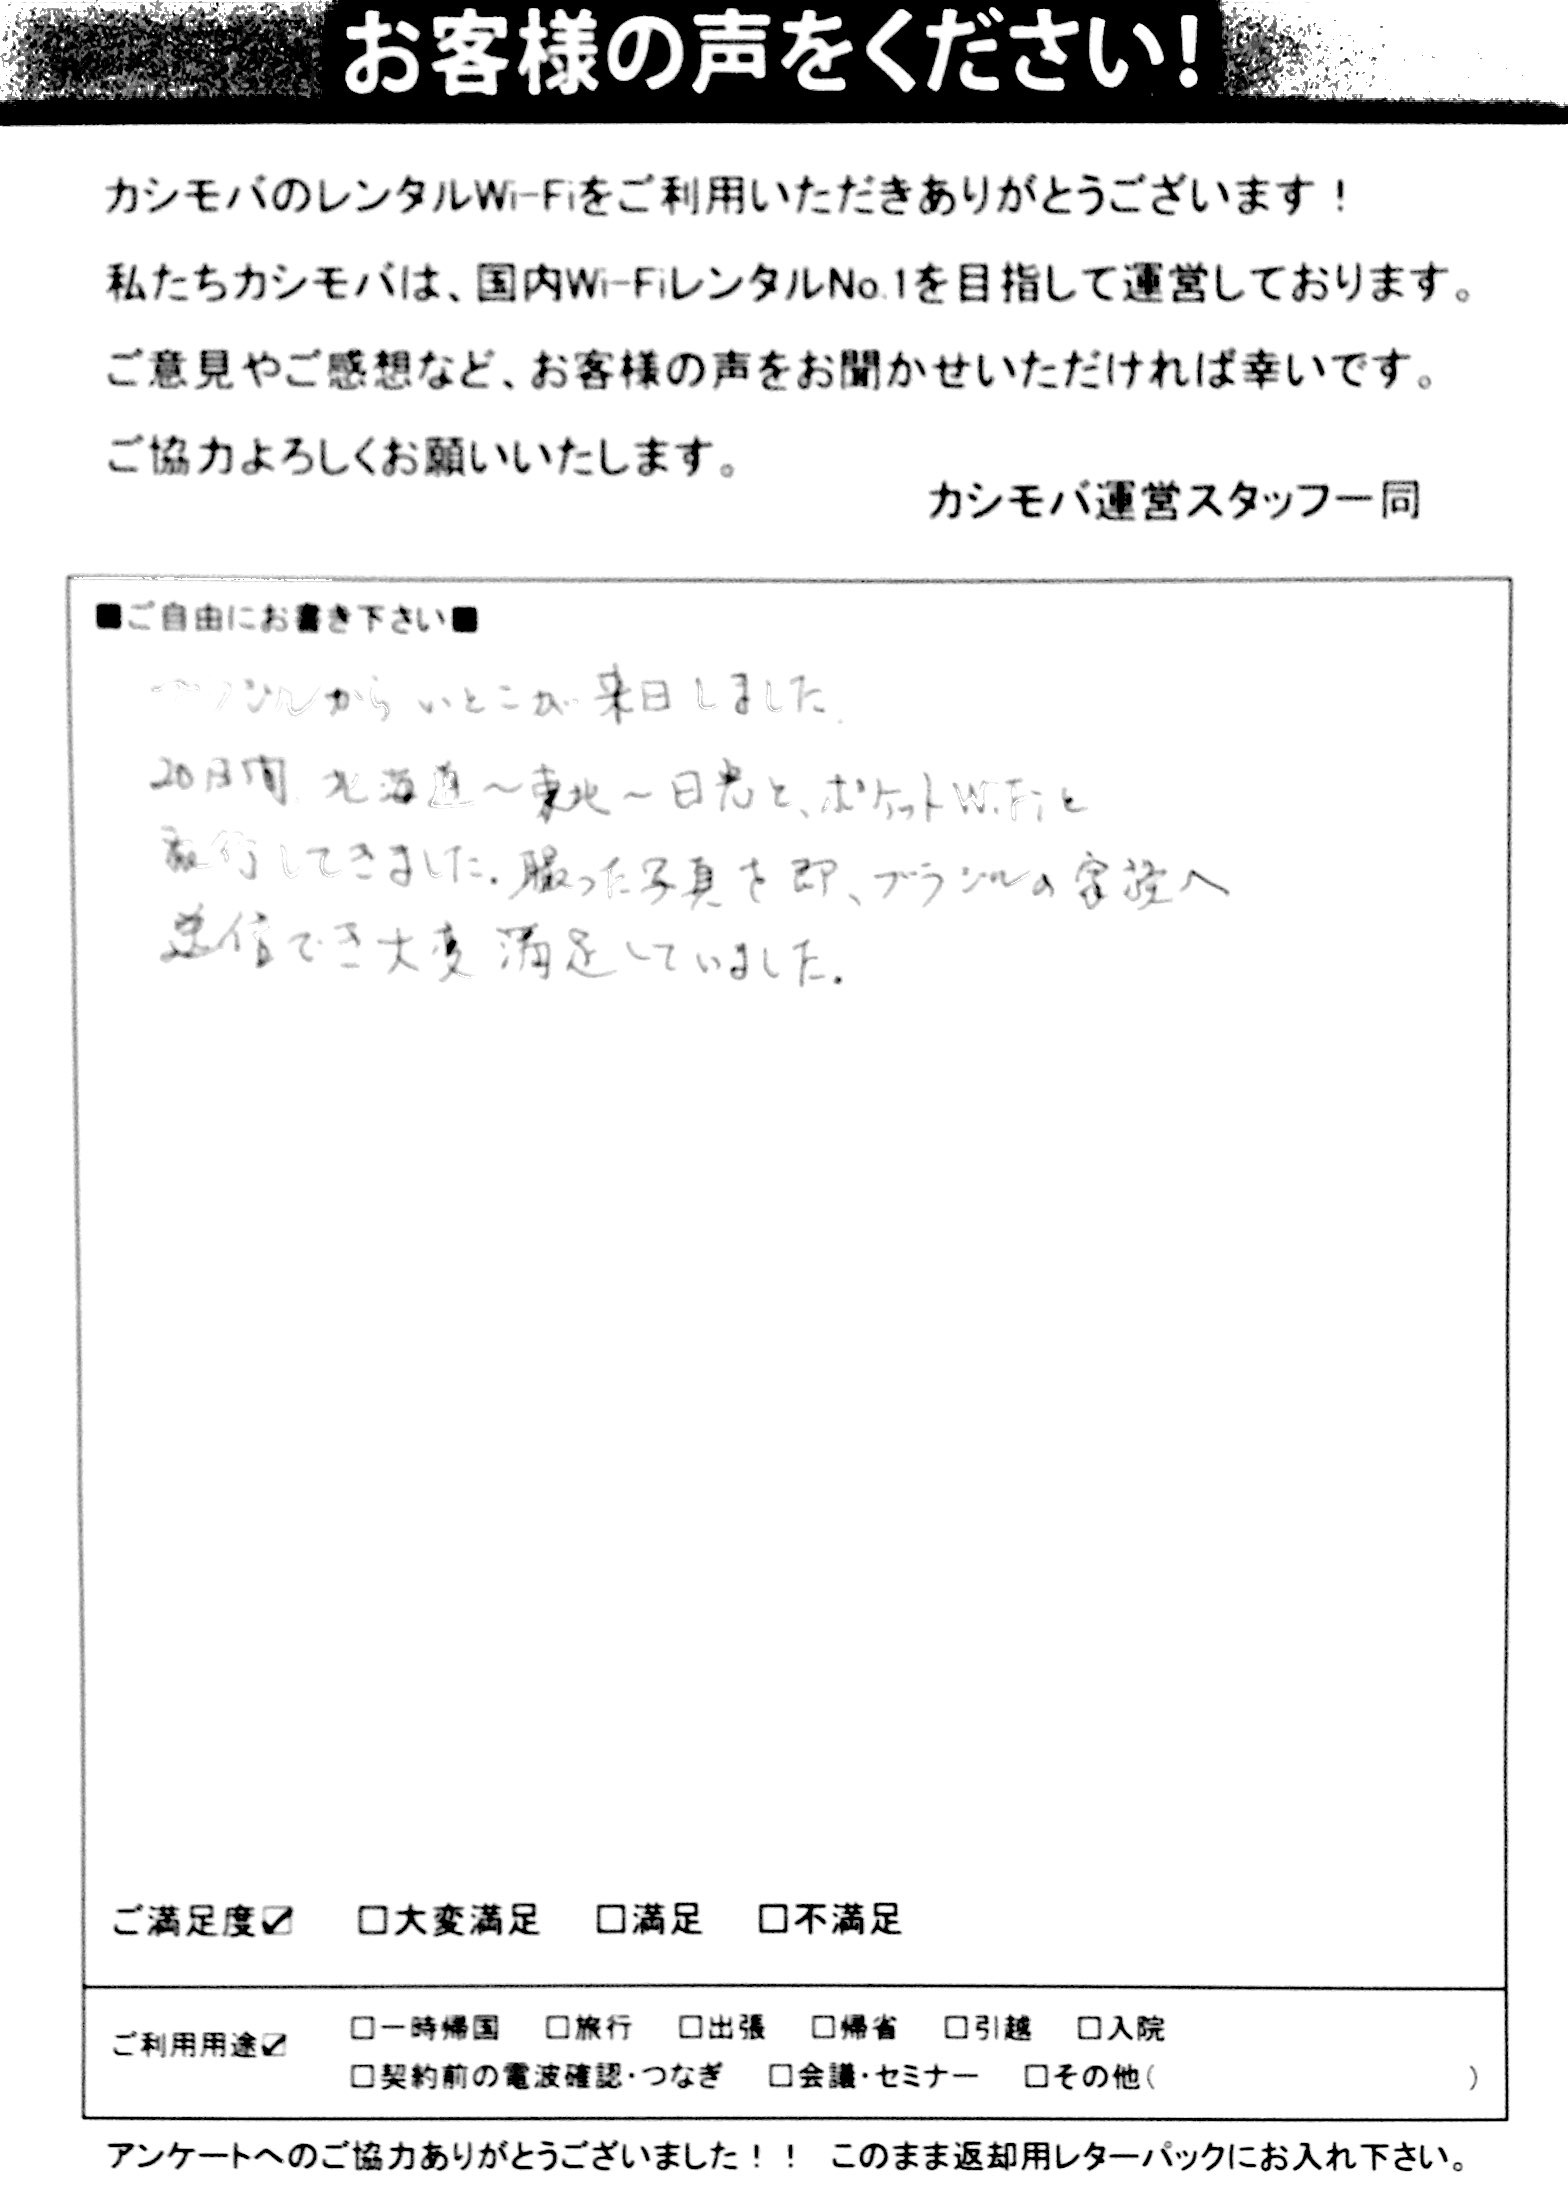 お客様の声をください!
カシモバのレンタルWi-Fiをご利用いただきありがとうございます！
私たちカシモバは、国内Wi-FiレンタルNo.1を目指して運営しております。
ご意見やご感想など、お客様の声をお聞かせいただければ幸いです。
ご協力よろしくお願いいたします。
カシモバ運営スタッフ一同
■ご自由にお書き下さい■
ブラジルからいとこが来日しました.
20日間、北海道～東北～日光と、ポケットWiFiと
旅行してきました.撮った写真を即、ブラジルの家族へ
送信でき大変満足していました.
ご満足度☑ □大変満足 □満足 □不満足
ご利用用途☑ □一時帰国 □旅行 □出張 □帰省 □引越 □入院
□契約前の電波確認・つなぎ □会議・セミナー □その他( )
アンケートへのご協力ありがとうございました！！ このまま返却用レターパックにお入れ下さい。